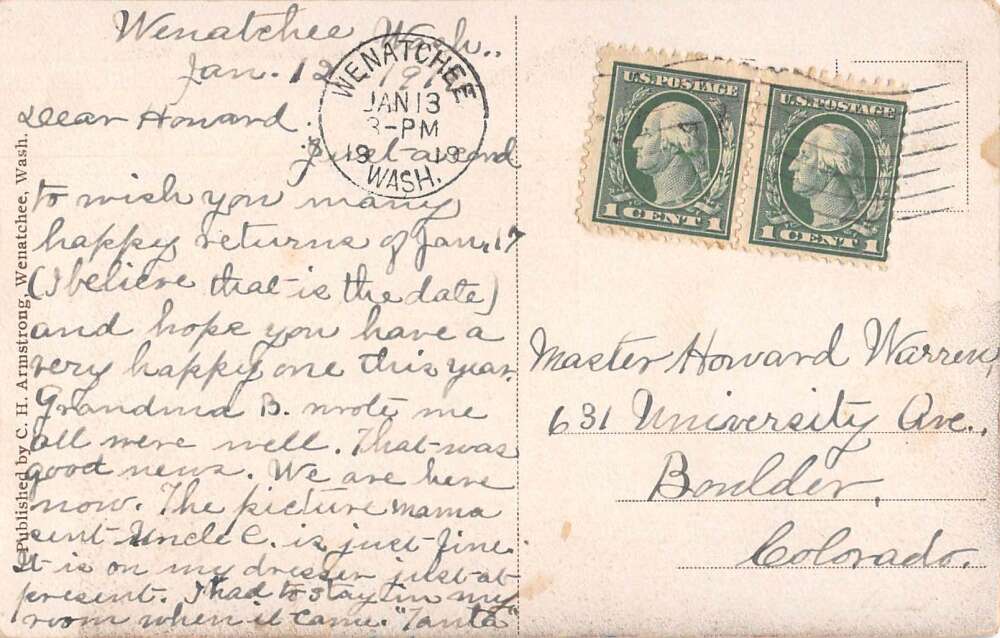 Wenatchee Wash.,
Jan. 12 19
Dear Howard.
Just a card
to wish you many
happy returns of Jan. 17
(I believe that is the date)
and hope you have a
very happy one this year.
Grandma B. wrote me
all were well. That was
good news. We are here
now. The picture mama
sent Uncle C. is just fine.
It is on my dresser just at
present. I had to stay in my
room when it came. "Tanta"
Published by C. H. Armstrong, Wenatchee, Wash.
WENATCHEE
JAN 13
3-PM
19 19
WASH.
U.S. POSTAGE
1 CENT 1
U.S. POSTAGE
1 CENT 1
Master Howard Warren,
631 University Ave.,
Boulder,
Colorado.